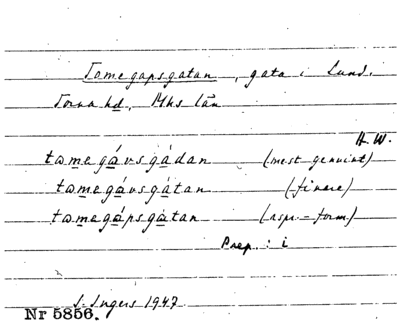 Tomegapsgatan, gata i Lund.
Torna hd, Mhs län
H. W.
tomegávsgádan (mest genuint)
tomegávsgátan (finare)
tomegápsgátan (rspr.-form)
Prep.: i
I. Ingers 1947
Nr 5856.